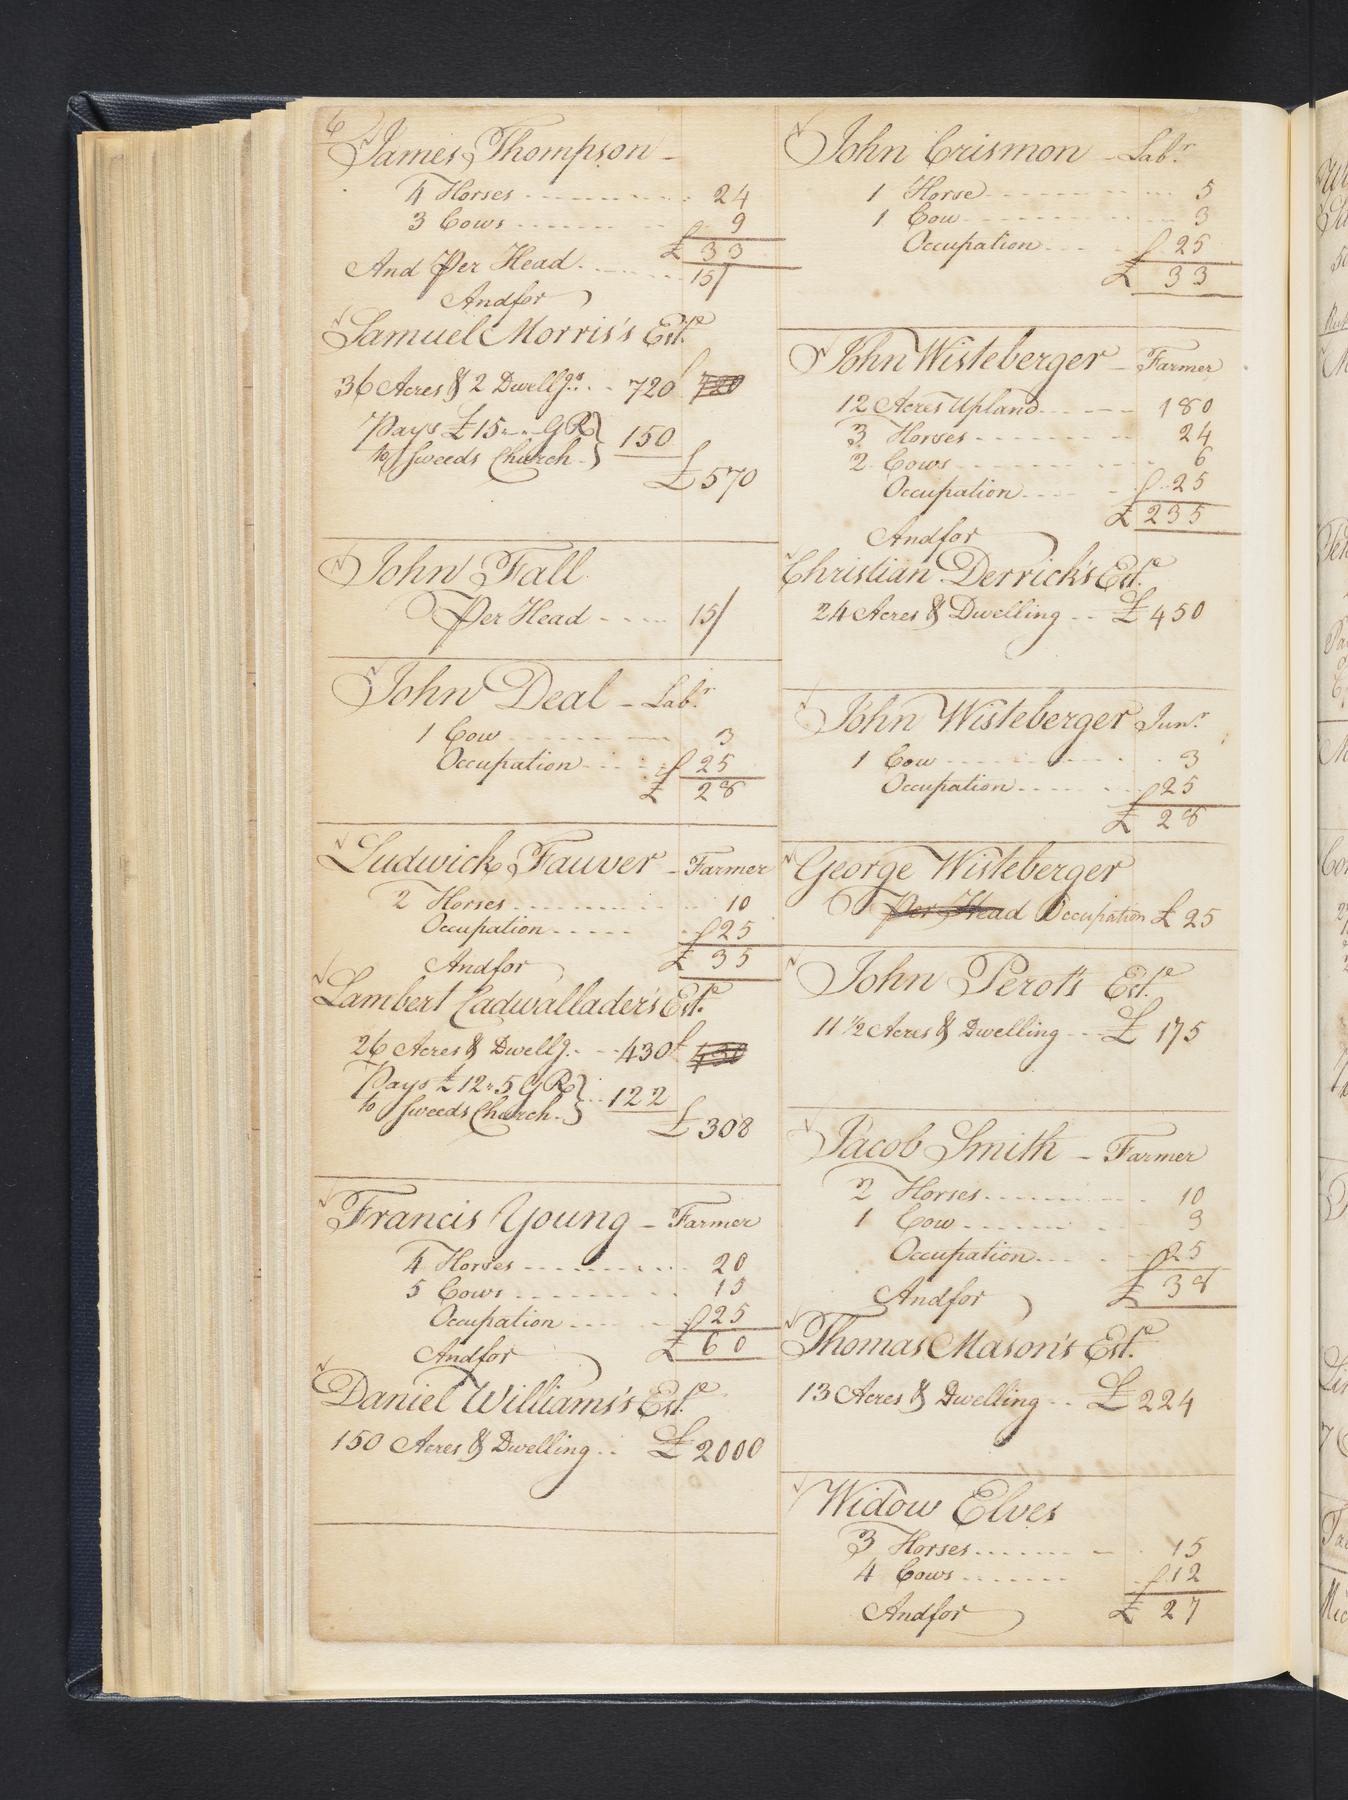 6
James Thompson -
4 Horses 24
3 Cows 9
£ 33
And Per Head 15/
And for
Samuel Morris's Est.e
36 Acres & 2 Dwellgs. 720 £
Pays £15 G R
to Sweeds Church 150
£570
John Fall
Per Head 15/
John Deal - Labr.
1 Cow 3
Occupation 25
£ 28
Ludwick Fauver - Farmer
2 Horses 10
Occupation 25
£ 35
And for
Lambert Cadwallader's Est.e
26 Acres & Dwellg. 430 £ 430
Pays £12"5 G R
to Sweeds Church 122
£308
Francis Young - Farmer
4 Horses 20
5 Cows 15
Occupation 25
£ 60
And for
Daniel Williams's Est.e
150 Acres & Dwelling £2000
John Crismon - Labr.
1 Horse 5
1 Cow 3
Occupation 25
£ 33
John Wisteberger - Farmer
12 Acres Upland 180
3 Horses 24
2 Cows 6
Occupation 25
£ 235
And for
Christian Derrick's Est.e
24 Acres & Dwelling £450
John Wisteberger Junr.
1 Cow 3
Occupation 25
£ 28
George Wisteberger
Per Head Occupation £25
John Perot's Est.e
11 1/2 Acres & Dwelling £ 175
Jacob Smith - Farmer
2 Horses 10
1 Cow 3
Occupation 25
£ 38
And for
Thomas Mason's Est.e
13 Acres & Dwelling £224
Widow Elves
3 Horses 15
4 Cows 12
£ 27
And for